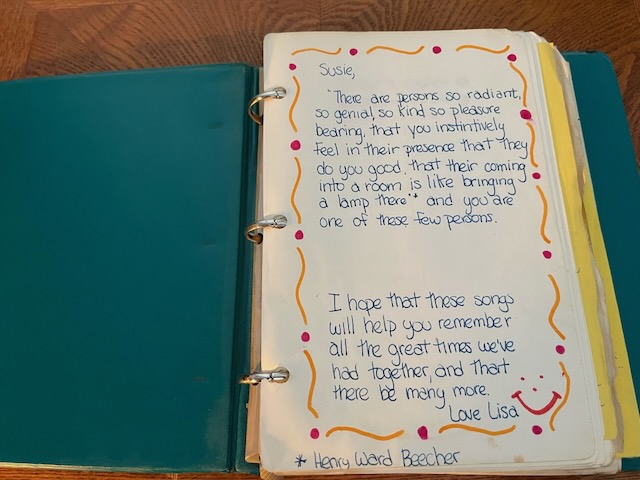 Susie,
"There are persons so radiant,
so genial, so kind so pleasure
bearing, that you instintively
feel in their presence that they
do you good, that their coming
into a room is like bringing
a lamp there"* and you are
one of these few persons.
I hope that these songs
will help you remember
all the great times we've
had together, and that
there be many more.
Love Lisa
* Henry Ward Beecher